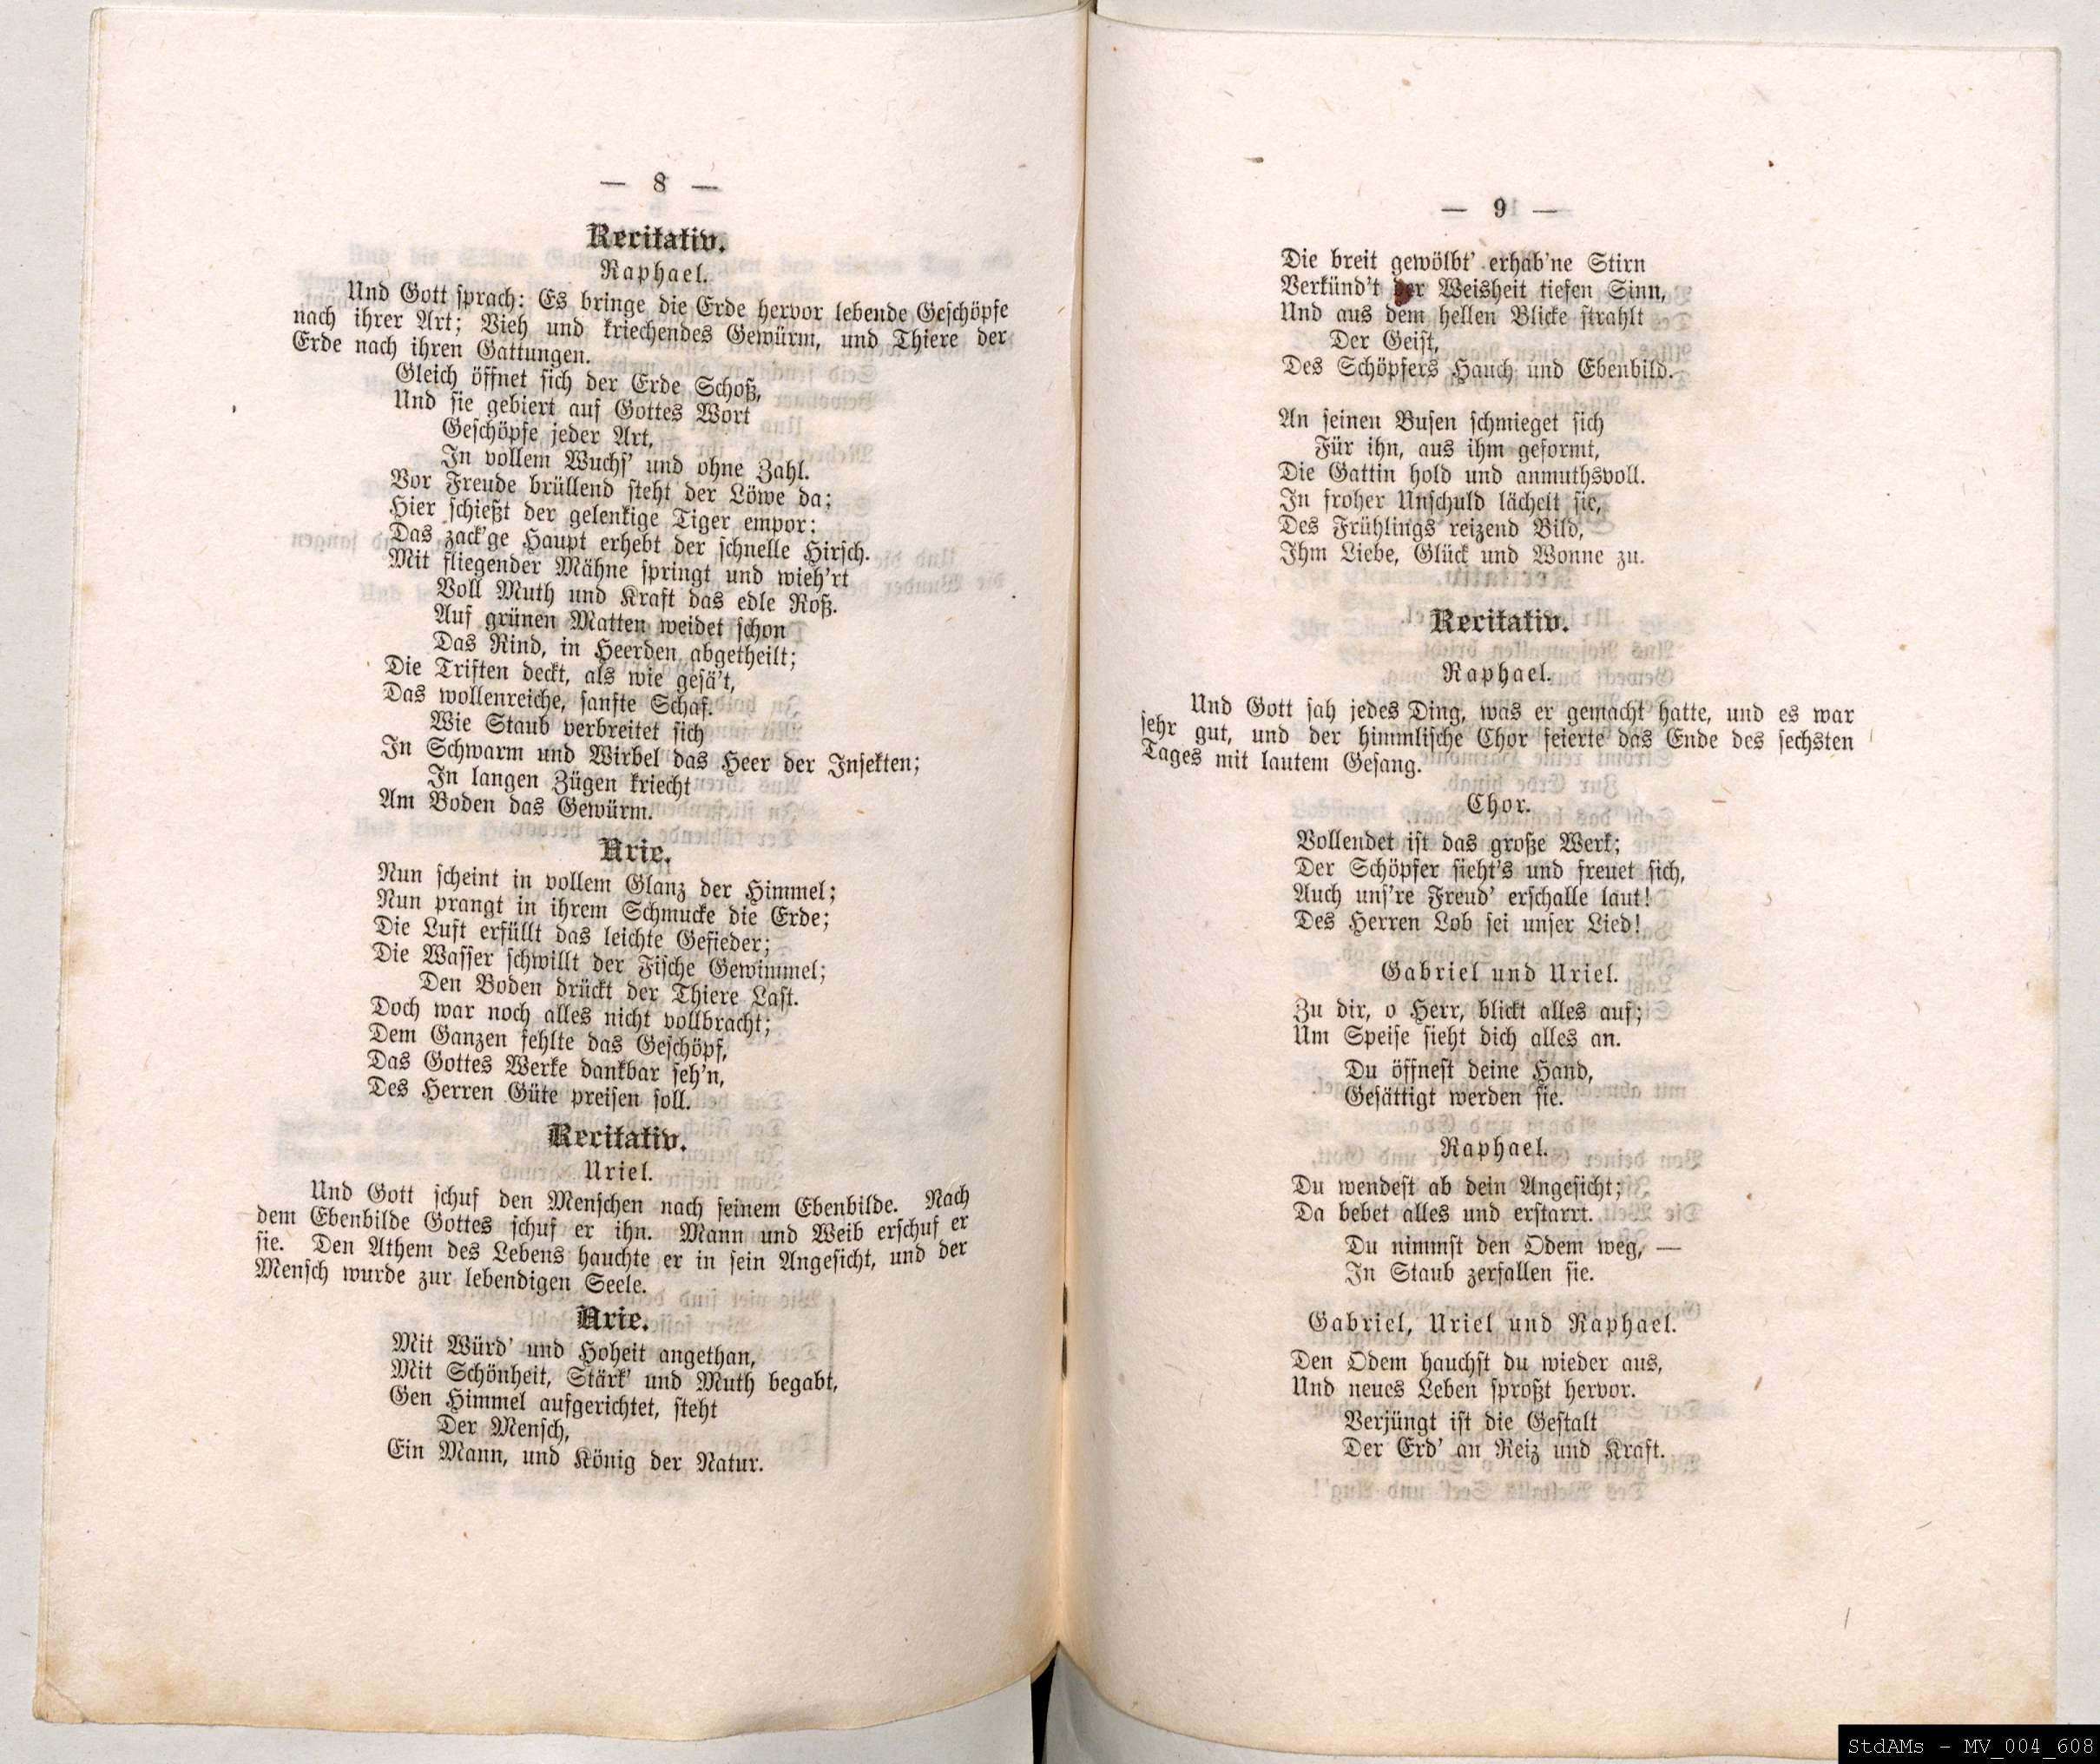 — 8 —
Recitativ.
Raphael.
Und Gott sprach: Es bringe die Erde hervor lebende Geschöpfe
nach ihrer Art; Vieh und kriechendes Gewürm, und Thiere der
Erde nach ihren Gattungen.
Gleich öffnet sich der Erde Schoß,
Und sie gebiert auf Gottes Wort
Geschöpfe jeder Art,
In vollem Wuchs' und ohne Zahl.
Vor Freude brüllend steht der Löwe da;
Hier schießt der gelenkige Tiger empor:
Das zack'ge Haupt erhebt der schnelle Hirsch.
Mit fliegender Mähne springt und wieh'rt
Voll Muth und Kraft das edle Roß.
Auf grünen Matten weidet schon
Das Rind, in Heerden abgetheilt;
Die Triften deckt, als wie gesä't,
Das wollenreiche, sanfte Schaf.
Wie Staub verbreitet sich
In Schwarm und Wirbel das Heer der Insekten;
In langen Zügen kriecht
Am Boden das Gewürm.
Arie.
Nun scheint in vollem Glanz der Himmel;
Nun prangt in ihrem Schmucke die Erde;
Die Luft erfüllt das leichte Gefieder;
Die Wasser schwillt der Fische Gewimmel;
Den Boden drückt der Thiere Last.
Doch war noch alles nicht vollbracht;
Dem Ganzen fehlte das Geschöpf,
Das Gottes Werke dankbar seh'n,
Des Herren Güte preisen soll.
Recitativ.
Uriel.
Und Gott schuf den Menschen nach seinem Ebenbilde. Nach
dem Ebenbilde Gottes schuf er ihn. Mann und Weib erschuf er
sie. Den Athem des Lebens hauchte er in sein Angesicht, und der
Mensch wurde zur lebendigen Seele.
Arie.
Mit Würd' und Hoheit angethan,
Mit Schönheit, Stärk' und Muth begabt,
Gen Himmel aufgerichtet, steht
Der Mensch,
Ein Mann, und König der Natur.
— 9 —
Die breit gewölbt' erhab'ne Stirn
Verkünd't der Weisheit tiefen Sinn,
Und aus dem hellen Blicke strahlt
Der Geist,
Des Schöpfers Hauch und Ebenbild.
An seinen Busen schmieget sich
Für ihn, aus ihm geformt,
Die Gattin hold und anmuthsvoll.
In froher Unschuld lächelt sie,
Des Frühlings reizend Bild,
Ihm Liebe, Glück und Wonne zu.
Recitativ.
Raphael.
Und Gott sah jedes Ding, was er gemacht hatte, und es war
sehr gut, und der himmlische Chor feierte das Ende des sechsten
Tages mit lautem Gesang.
Chor.
Vollendet ist das große Werk;
Der Schöpfer sieht's und freuet sich,
Auch uns're Freud' erschalle laut!
Des Herren Lob sei unser Lied!
Gabriel und Uriel.
Zu dir, o Herr, blickt alles auf;
Um Speise sieht dich alles an.
Du öffnest deine Hand,
Gesättigt werden sie.
Raphael.
Du wendest ab dein Angesicht;
Da bebet alles und erstarrt.
Du nimmst den Odem weg, —
In Staub zerfallen sie.
Gabriel, Uriel und Raphael.
Den Odem hauchst du wieder aus,
Und neues Leben sproßt hervor.
Verjüngt ist die Gestalt
Der Erd' an Reiz und Kraft.
StdAMs - MV_004_608